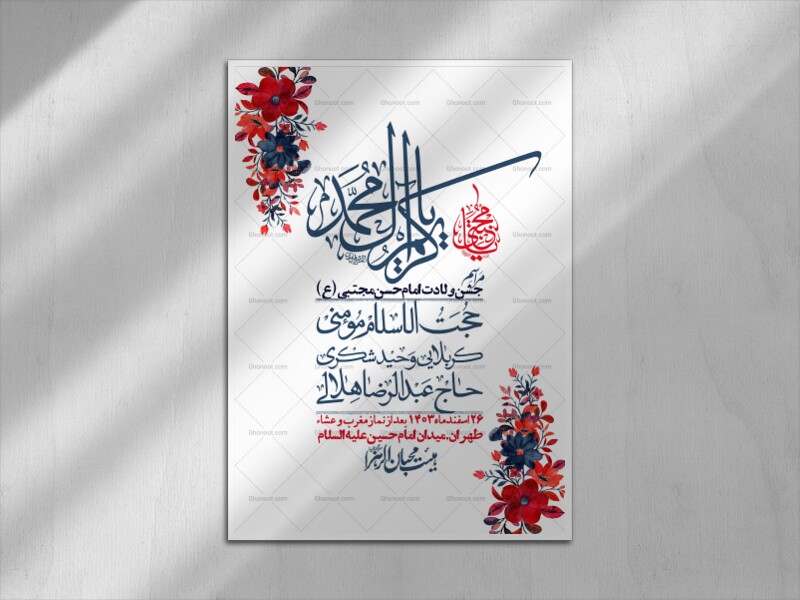 یا کریم آل محمد
یا مجتبی
مراسم
جشن ولادت امام حسن مجتبی (ع)
حجت الاسلام مؤمنی
کربلایی وحید شکری
حاج عبدالرضا هلالی
۲۶ اسفند ماه ۱۴۰۳ بعد از نماز مغرب و عشاء
طهران، میدان امام حسین علیه السلام
هیئت محبان الزهرا
Ghonoot.com